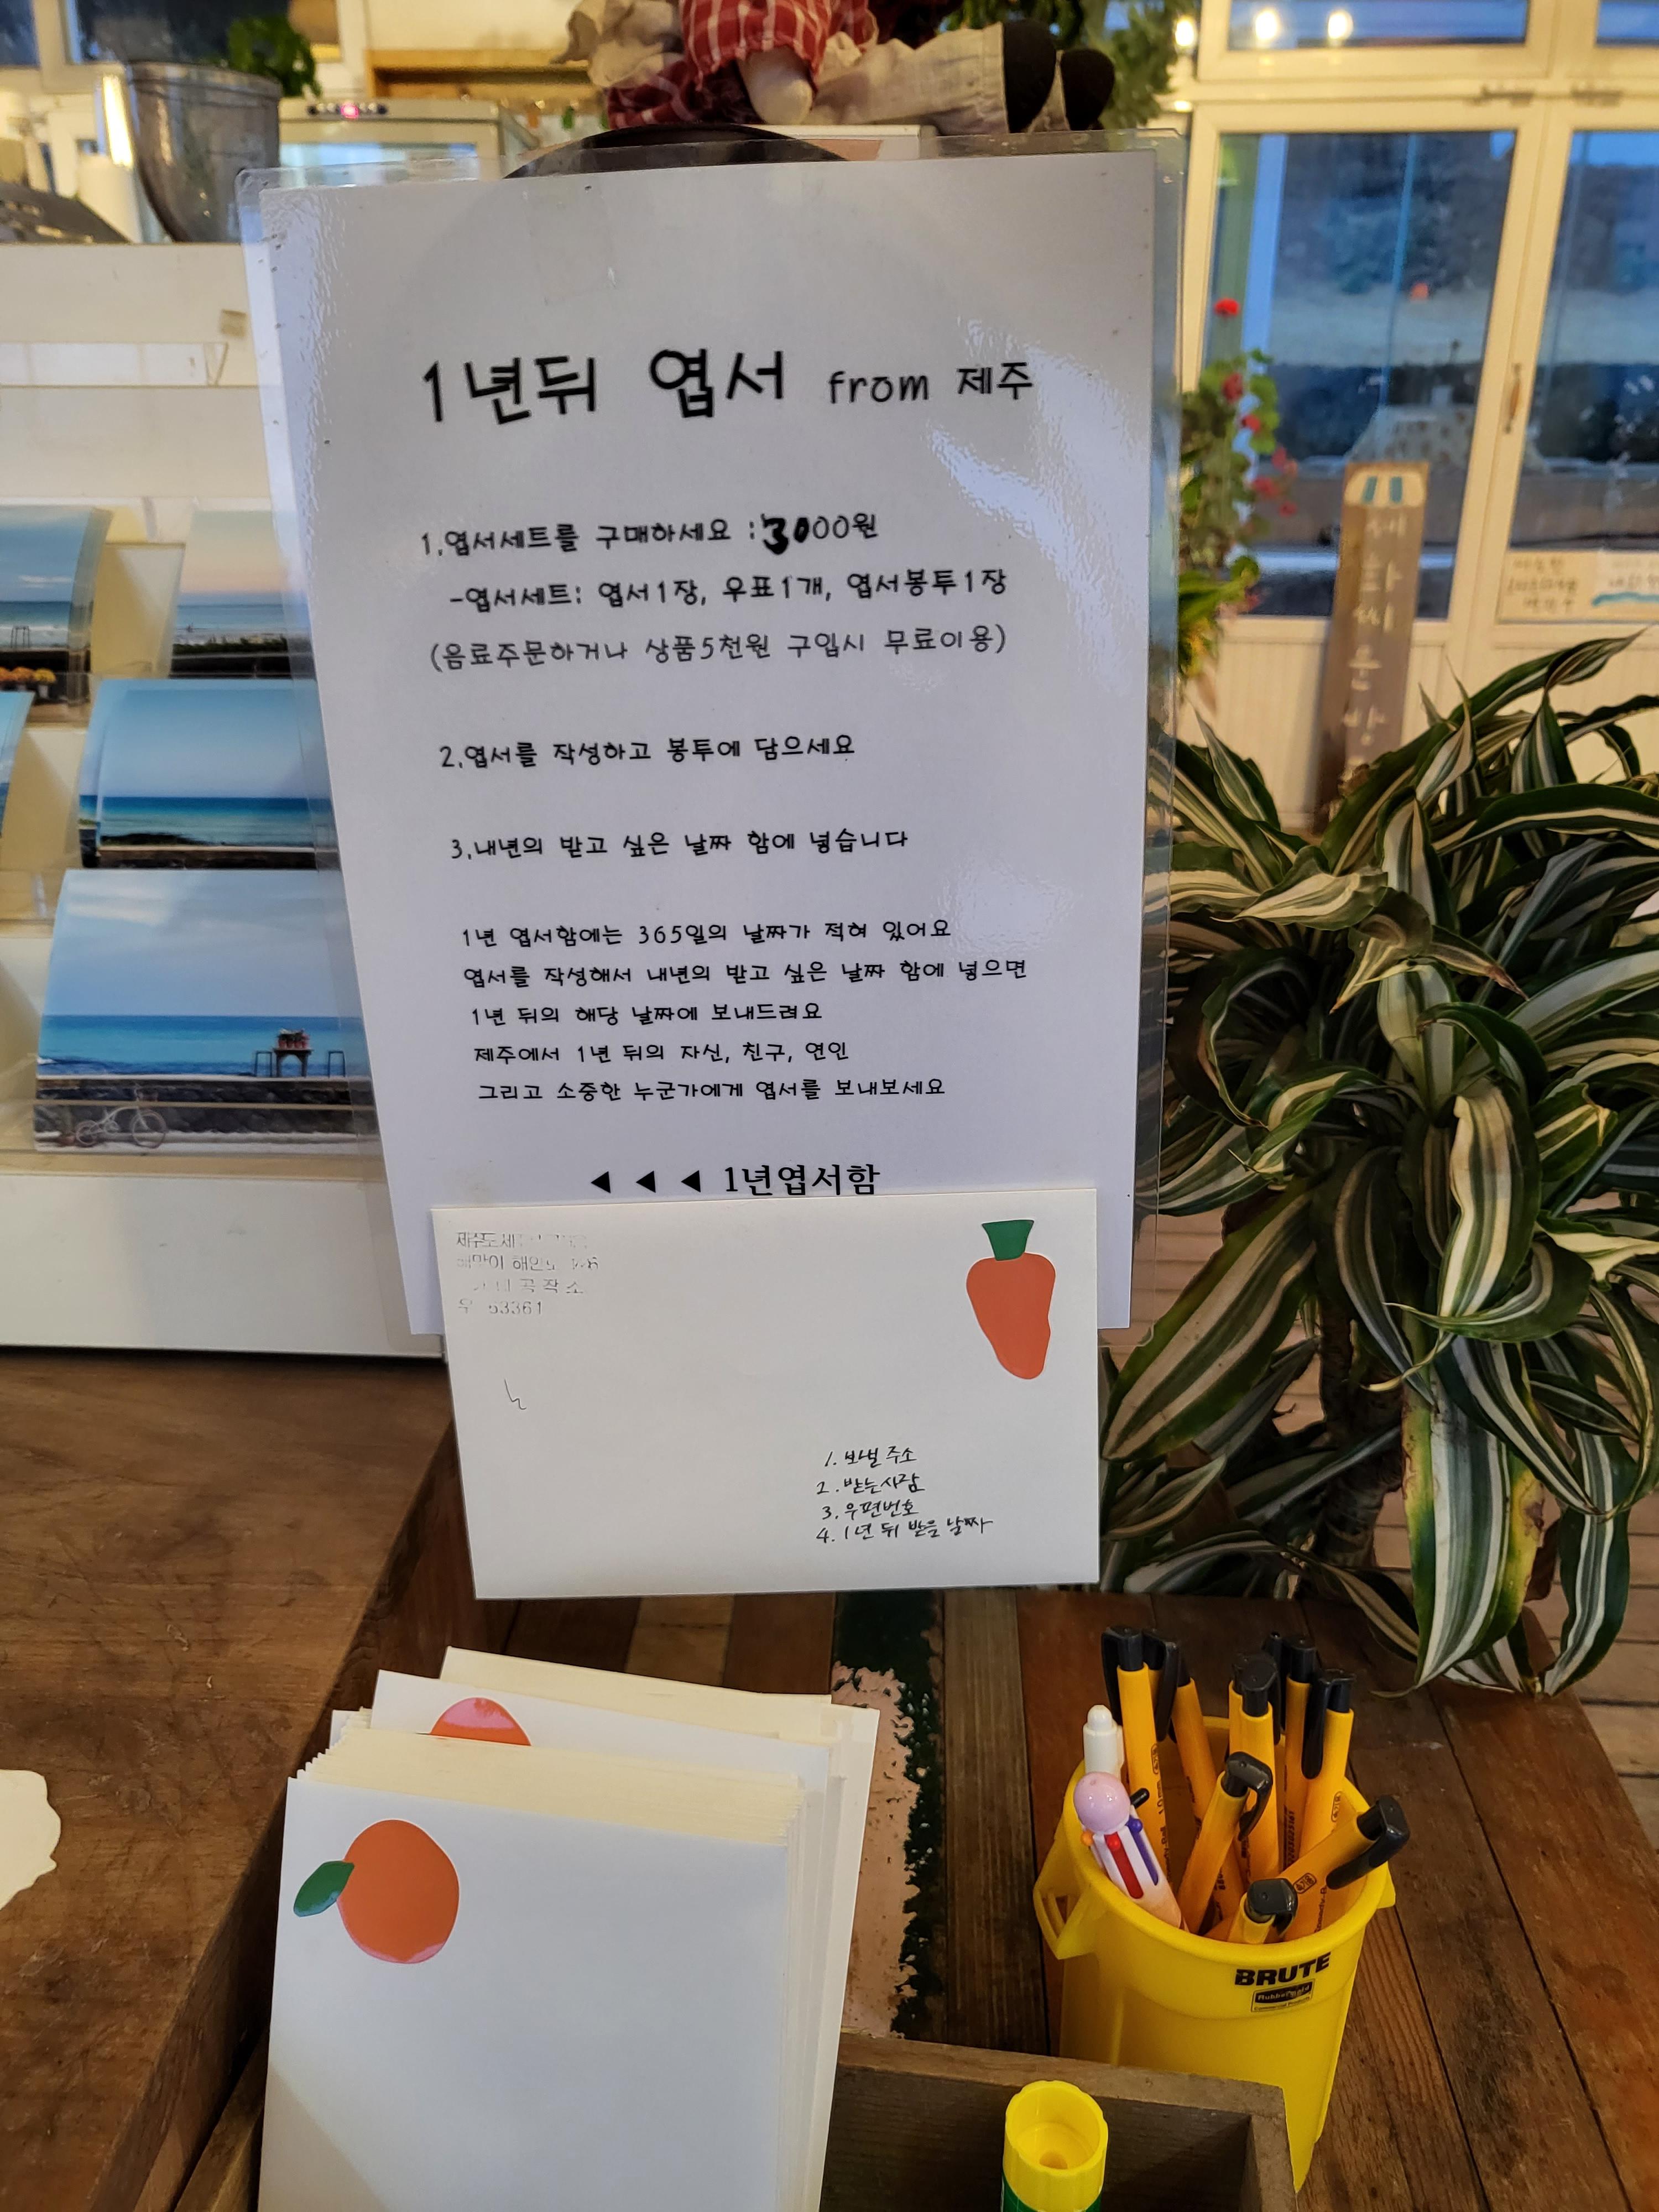 1년뒤 엽서 from 제주
1.엽서세트를 구매하세요 :3000원
-엽서세트: 엽서1장, 우표1개, 엽서봉투1장
(음료주문하거나 상품5천원 구입시 무료이용)
2.엽서를 작성하고 봉투에 담으세요
3.내년의 받고 싶은 날짜 함에 넣습니다
1년 엽서함에는 365일의 날짜가 적혀 있어요
엽서를 작성해서 내년의 받고 싶은 날짜 함에 넣으면
1년 뒤의 해당 날짜에 보내드려요
제주에서 1년 뒤의 자신, 친구, 연인
그리고 소중한 누군가에게 엽서를 보내보세요
◀ ◀ ◀ 1년엽서함
공작소
우 63361
1. 보낼 주소
2. 받는사람
3. 우편번호
4. 1년 뒤 받을 날짜
BRUTE